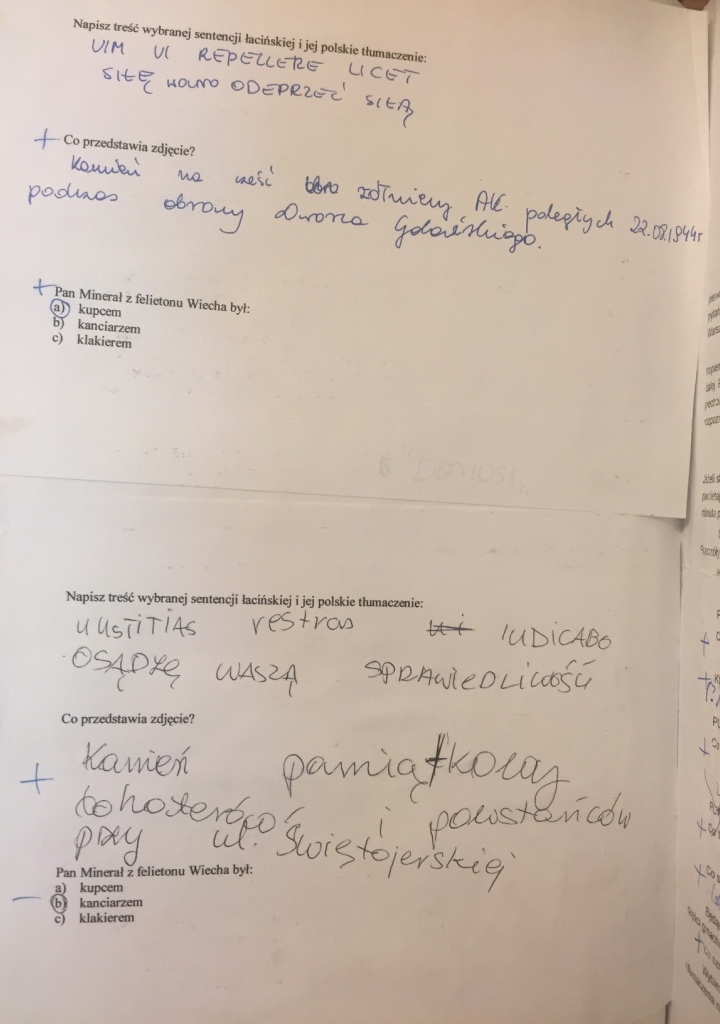 Napisz treść wybranej sentencji łacińskiej i jej polskie tłumaczenie:
VIM VI REPELLERE LICET
SIŁĘ WOLNO ODEPRZEĆ SIŁĄ
+ Co przedstawia zdjęcie?
Kamień na cześć żołnierzy AK poległych 22.08.1944r
podczas obrony Dworca Gdańskiego.
+ Pan Minerał z felietonu Wiecha był:
a) kupcem
b) kanciarzem
c) klakierem
Napisz treść wybranej sentencji łacińskiej i jej polskie tłumaczenie:
IUSTITIAS vestras IUDICABO
OSĄDZĘ WASZĄ SPRAWIEDLIWOŚĆ
Co przedstawia zdjęcie?
+ Kamień pamiątkowy
bohaterów i powstańców
przy ul. Świętojerskiej
Pan Minerał z felietonu Wiecha był:
a) kupcem
– b) kanciarzem
c) klakierem